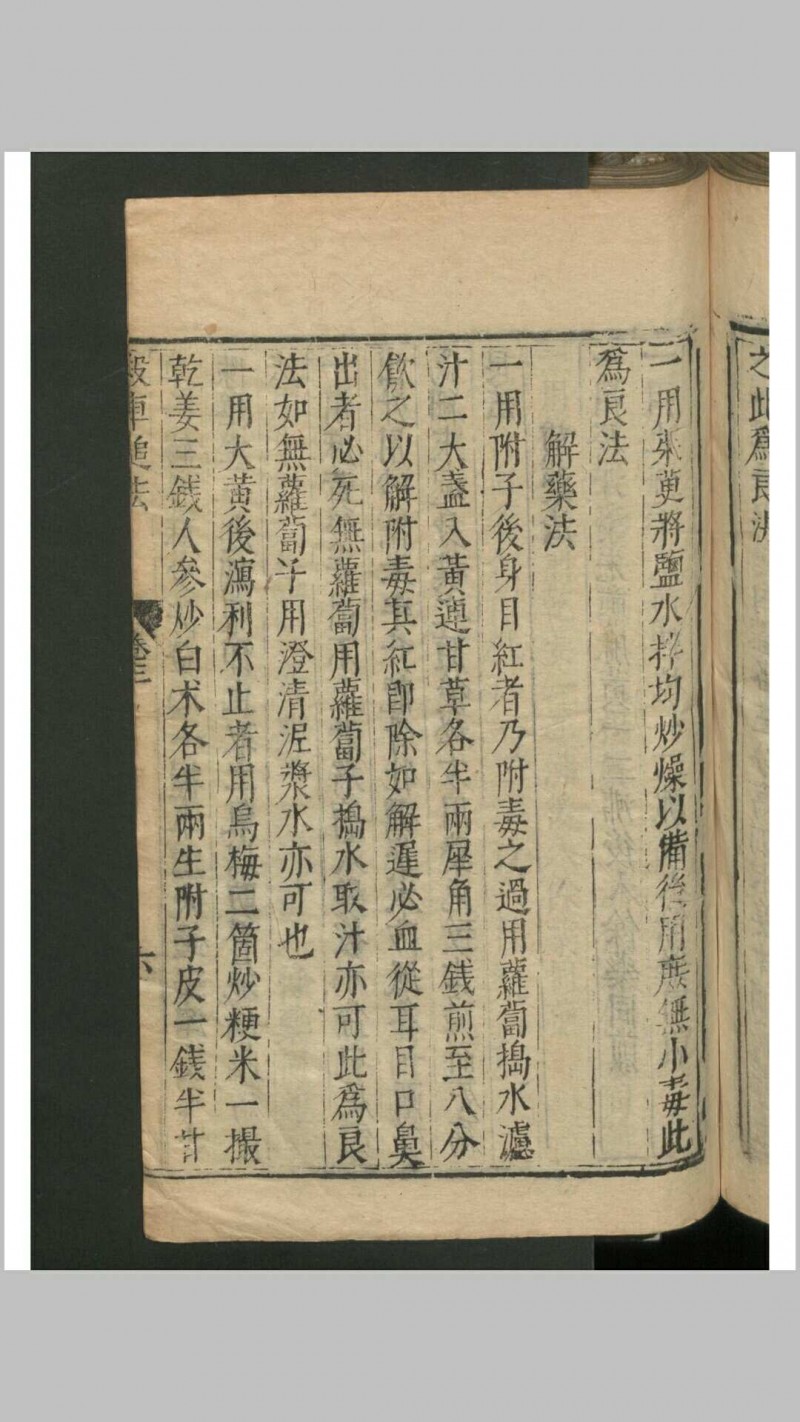 之此為良法
一用朱萸將鹽水拌均炒燥以備後用庶無小毒此
為良法
解藥法
一用附子後身目紅者乃附毒之過用蘿蔔搗水濾
汁二大盞入黃連甘草各半兩犀角三錢煎至八分
飲之以解附毒其紅即除如解遲必血從耳目口鼻
出者必死無蘿蔔用蘿蔔子搗水取汁亦可此為良
法如無蘿蔔子用澄清泥漿水亦可也
一用大黃後瀉利不止者用烏梅二箇炒粳米一撮
乾姜三錢人參炒白术各半兩生附子皮一錢半甘
殺車槌法
卷三
六